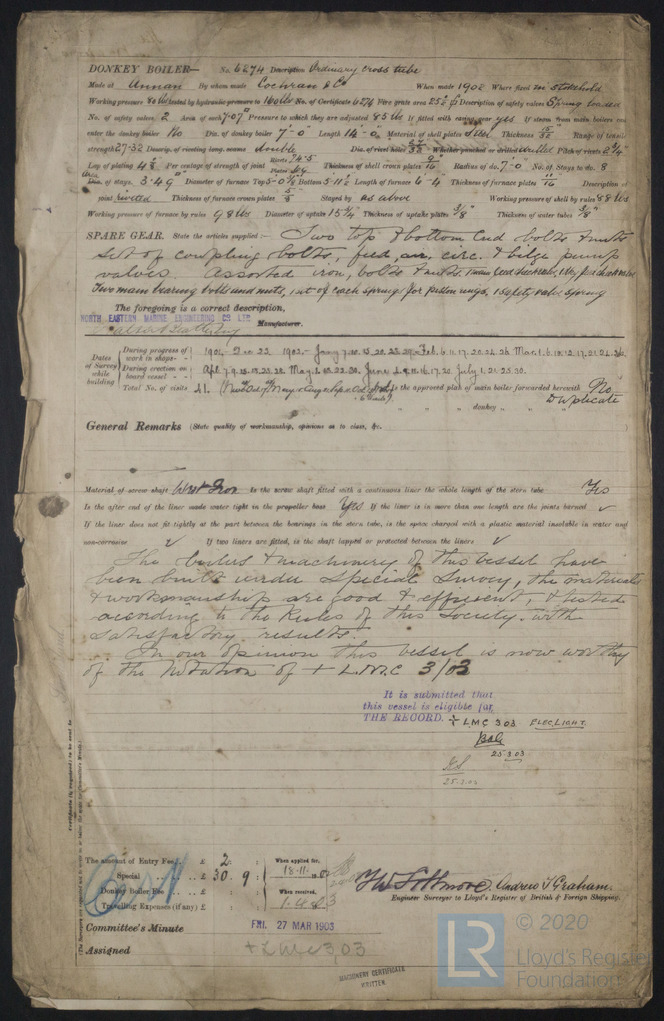 DONKEY BOILER— No. 6274 Description Ordinary cross tube
Made at Annan By whom made Cochran & Co When made 1902 Where fixed in stokehold
Working pressure 80 lbs tested by hydraulic pressure to 160 lbs No. of Certificate 6274 Fire grate area Description of safety valves Spring loaded
No. of safety valves 2 Area of each 7.07" Pressure to which they are adjusted 85 lbs If fitted with easing gear yes If steam from main boilers can
enter the donkey boiler No Dia. of donkey boiler 7'-0" Length 14'-0" Material of shell plates Steel Thickness 15/32" Range of tensile
strength 27-32 Descrip. of riveting long. seams double Dia. of rivet holes Whether punched or drilled drilled Pitch of rivets 2 3/4"
Lap of plating Per centage of strength of joint Rivets 74.5 Plates Thickness of shell crown plates 9/16" Radius of do. 7'-0" No. of Stays to do. 8
Dia. of stays. 3.49" Diameter of furnace Top Bottom 5-11 1/2 Length of furnace 6'-4" Thickness of furnace plates Description of
joint riveted Thickness of furnace crown plates 5/8" Stayed by as above Working pressure of shell by rules 88 lbs
Working pressure of furnace by rules 98 lbs Diameter of uptake 15 1/4" Thickness of uptake plates 3/8" Thickness of water tubes 3/8"
SPARE GEAR. State the articles supplied:— Two top & bottom End bolts & nuts
set of coupling bolts, feed, air, circ. & bilge pump
valves. Assorted iron, bolts & nuts.
Two main bearing bolts and nuts, 1 set of each springs for piston rings, 1 safety valve spring
The foregoing is a correct description,
NORTH EASTERN MARINE ENGINEERING CO LTD
Manufacturer.
Dates of Survey while building
During progress of work in shops - - 1901. Dec 23 1902. Jany 7. 10. 15. 20. 23. 29. Feb. 6. 11. 17. 20. 24. 26. Mar. 1. 6.
During erection on board vessel - - - Apl. 7. 9. May. 1. June July 1. 21. 25. 30.
Total No. of visits 41. Is the approved plan of main boiler forwarded herewith No
" " " donkey " " " Duplicate
General Remarks (State quality of workmanship, opinions as to class, &c.
Material of screw shaft Wrot Iron Is the screw shaft fitted with a continuous liner the whole length of the stern tube Yes
Is the after end of the liner made water tight in the propeller boss Yes If the liner is in more than one length are the joints burned ✓
If the liner does not fit tightly at the part between the bearings in the stern tube, is the space charged with a plastic material insoluble in water and
non-corrosive ✓ If two liners are fitted, is the shaft lapped or protected between the liners ✓
The boilers & machinery of this vessel have
been built under Special Survey, the materials
& workmanship are good & efficient, & tested
according to the Rules of this Society. with
satisfactory results.
In our opinion this vessel is now worthy
of the Notation of + L.M.C 3/03
It is submitted that
this vessel is eligible for
THE RECORD. + LMC 3 03 ELEC. LIGHT.
25.3.03
25.3.03
Certificate (if required) to be sent to
(The Surveyors are requested not to write on or below the space for Committee's Minute.)
The amount of Entry Fee . . £ 2 : : When applied for,
Special . . . . £ 30. 9 : 18.11.
Donkey Boiler Fee . . . £ : : When received,
Travelling Expenses (if any) £ : :
Andrew T Graham.
Engineer Surveyor to Lloyd's Register of British & Foreign Shipping.
Committee's Minute FRI. 27 MAR 1903
Assigned + LMC 3,03
MACHINERY CERTIFICATE
WRITTEN
LR
© 2020
Lloyd's Register
Foundation